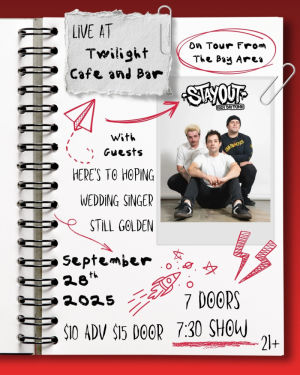 LIVE AT
Twilight
Cafe and Bar
On Tour From
The Bay Area
STAYOUT
With
Guests
HERE'S TO HOPING
WEDDING SINGER
STILL GOLDEN
September
28th
2025
7 DOORS
$10 ADV $15 DOOR
7:30 SHOW
21+